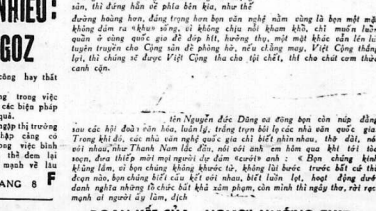 NHIỀU:
GOZ
công hay thất
ng trong việc
các biện pháp
quả.
gặp thị trưởng
hập căng có
ong việc bình
thì đem lại
mạnh về lâu
ANG 8 F
sản, thì đứng hẳn về phía bên kia, như thế
đường hoàng hơn, đáng trọng hơn bọn văn nghệ nằm cùng là bọn một mặt
không dám ra «khu» sống, vì không chịu nổi kham khổ, chỉ muốn luẩn
quẩn ở vùng quốc gia để đớp hít, hưởng thụ, một mặt khác vẫn lên lút
tuyên truyền cho Cộng sản để phòng hờ, nếu chẳng may, Việt Cộng thắng
lợi, thì chúng sẽ được Việt Cộng tha cho tội chết, thí cho chút cơm thừa
canh cặn.
tên Nguyễn đức Dũng và đồng bọn còn núp đằng
sau các hội đoàn văn hóa, luân lý, tráng trợn bôi lọ các nhà văn quốc gia.
Trong khi đó, các nhà văn nghệ quốc gia chỉ biết nhìn nhau, thở dài, nói
với nhau, như Thanh Nam lắc đầu, nói với anh em hôm qua khi tới tòa
soạn, đưa thiếp mời mọi người dự đám «cưới» anh: « Bọn chúng kinh
khủng lắm, vì bọn chúng không khước từ, không lùi bước trước bất cứ thủ
đoạn nào, bọn chúng biết câu kết với nhau, biết luồn lọt, hoạt động dưới
danh nghĩa những tổ chức bất khả xâm phạm, còn mình thì ngây thơ, rời rạc,
mạnh ai người ấy làm, địch